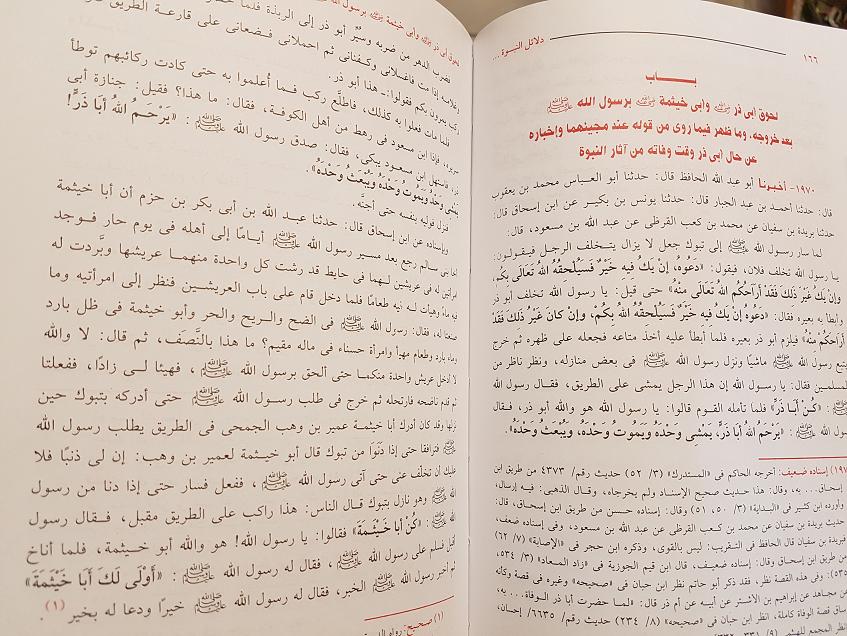 ١٦٦
دلائل النبوة ...
بـــــاب
لحوق أبى ذر ﵁ وأبى خيثمة ﵁ برسول الله ﷺ
بعد خروجه، وما ظهر فيما روى من قوله عند مجيئهما وإخباره
عن حال أبى ذر وقت وفاته من آثار النبوة
١٩٧٠- أخبرنا أبو عبد الله الحافظ قال: حدثنا أبو العباس محمد بن يعقوب
قال: حدثنا أحمد بن عبد الجبار قال: حدثنا يونس بن بكير عن ابن إسحاق قال:
حدثنا بريدة بن سفيان عن محمد بن كعب القرظى عن عبد الله بن مسعود، قال:
لما سار رسول الله ﷺ إلى تبوك جعل لا يزال يتخلف الرجل فيقولون:
يا رسول الله تخلف فلان، فيقول: «دَعُوهُ، إِنْ يَكُ فِيهِ خَيْرٌ فَسَيُلْحِقُهُ اللهُ تَعَالَى بِكُمْ،
وَإِنْ يَكُ غَيْرُ ذَلِكَ فَقَدْ أَرَاحَكُمُ اللهُ تَعَالَى مِنْهُ» حتى قيل: يا رسول الله تخلف أبو ذر
وأبطأ به بعيره فقال: «دَعُوهُ إِنْ يَكُ فِيهِ خَيْرٌ فَسَيُلْحِقُهُ اللهُ بِكُمْ، وَإِنْ كَانَ غَيْرُ ذَلِكَ فَقَدْ
أَرَاحَكُمْ مِنْهُ» فيلزم أبو ذر بعيره فلما أبطأ عليه أخذ متاعه فجعله على ظهره ثم خرج
يتبع رسول الله ﷺ ماشيًا ونزل رسول الله ﷺ فى بعض منازله، ونظر ناظر من
المسلمين فقال: يا رسول الله إن هذا الرجل يمشى على الطريق، فقال رسول الله
ﷺ: «كُنْ أَبَا ذَرٍّ» فلما تأمله القوم قالوا: يا رسول الله هو والله أبو ذر، فقال
رسول الله ﷺ: «يَرْحَمُ اللهُ أَبَا ذَرٍّ، يَمْشِى وَحْدَهُ وَيَمُوتُ وَحْدَهُ، وَيُبْعَثُ وَحْدَهُ».
إسناده ضعيف: أخرجه الحاكم فى «المستدرك» (٣/ ٥٢) حديث رقم/ ٤٣٧٣ من طريق ابن
إسحاق... به، وقال: هذا حديث صحيح الإسناد ولم يخرجاه، وقال الذهبى: فيه إرسال،
وأورده ابن كثير فى «البداية» (٣/ ٥٠، ٥١) وقال: إسناده حسن من طريق ابن إسحاق، قال:
حديث بريدة بن سفيان عن محمد بن كعب القرظى عن عبد الله بن مسعود، وفى إسناده ضعف،
فبريدة بن سفيان قال الحافظ فى التقريب: ليس بالقوى، وذكره ابن حجر فى «الإصابة» (٧/ ٦٢)
من طريق ابن إسحاق وقال: إسناده ضعيف، قال ابن القيم الجوزية فى «زاد المعاد» (٣/ ٥٣٤،
٥٣٥): وفى هذه القصة نظر، فقد ذكر أبو حاتم بن حبان فى «صحيحه» وغيره فى قصة وفاته
عن مجاهد عن إبراهيم بن الأشتر عن أبيه عن أم ذر قال: «لما حضرت أبا ذر الوفاة... به،
ساق قصة الوفاة كاملة، انظر ابن حبان فى «صحيحه» (٨/ ٢٣٤) حديث رقم/ ٦٦٣٥- إحسان،
لحوق أبى ذر ﵁ وأبى خيثمة ﵁ برسول الله
فضرب الدهر من ضربه وسُيِّر أبو ذر إلى الربذة فلما
وغلامه إذا مت فاغسلانى وكفنانى ثم احملانى فضعانى على قارعة الطريق
ركب يمرون بكم فقولوا:- هذا أبو ذر.
فلما مات فعلوا به كذلك، فاطلَع ركب فما أُعلموا به حتى كادت ركائبهم توطأ
سريره، فإذا ابن مسعود فى رهط من أهل الكوفة، فقال: ما هذا؟ فقيل: جنازة أبى
ذر، فاستهل ابن مسعود يبكى، فقال: صدق رسول الله ﷺ: «يَرْحَمُ اللهُ أَبَا ذَرٍّ!
يَمْشِى وَحْدَهُ وَيَمُوتُ وَحْدَهُ وَيُبْعَثُ وَحْدَهُ».
فنزل فوليه بنفسه حتى أجنَّه.
وبإسناده عن ابن إسحاق قال: حدثنا عبد الله بن أبى بكر بن حزم أن أبا خيثمة
أخا بنى سالم رجع بعد مسير رسول الله ﷺ أيامًا إلى أهله فى يوم حار فوجد
امرأتين له فى عريشين لهما فى حايط قد رشت كل واحدة منهما عريشها وبرَّدت له
فيه ماءً وهيأت له فيه طعامًا فلما دخل قام على باب العريشين فنظر إلى امرأتيه وما
صنعتا له، فقال: رسول الله ﷺ فى الضح والريح والحر وأبو خيثمة فى ظل بارد
وماء بارد وطعام مهيأ وامرأة حسناء فى ماله مقيم؟ ما هذا بالنَّصَف، ثم قال: لا والله
لا أدخل عريش واحدة منكما حتى ألحق برسول الله ﷺ، فهيئا لى زادًا، ففعلتا
ثم قدم ناضحه فارتحله ثم خرج فى طلب رسول الله ﷺ حتى أدركه بتبوك حين
نزلها وقد كان أدرك أبا خيثمة عمير بن وهب الجمحى فى الطريق يطلب رسول الله
ﷺ فترافقا حتى إذا دَنَوْا من تبوك قال أبو خيثمة لعمير بن وهب: إن لى ذنبًا فلا
عليك أن تخلف عنى حتى آتى رسول الله ﷺ، ففعل فسار حتى إذا دنا من رسول
الله ﷺ وهو نازل بتبوك قال الناس: هذا راكب على الطريق مقبل، فقال رسول
الله ﷺ: «كُنْ أَبَا خَيْثَمَةَ» فقالوا: يا رسول الله! هو والله أبو خيثمة، فلما أناخ
أقبل فسلم على رسول الله ﷺ، فقال له رسول الله ﷺ: «أَوْلَى لَكَ أَبَا خَيْثَمَةَ»
ثم أخبر رسول الله ﷺ الخبر، فقال له رسول الله ﷺ خيرًا ودعا له بخير (١).
(١) صحيح: رواه